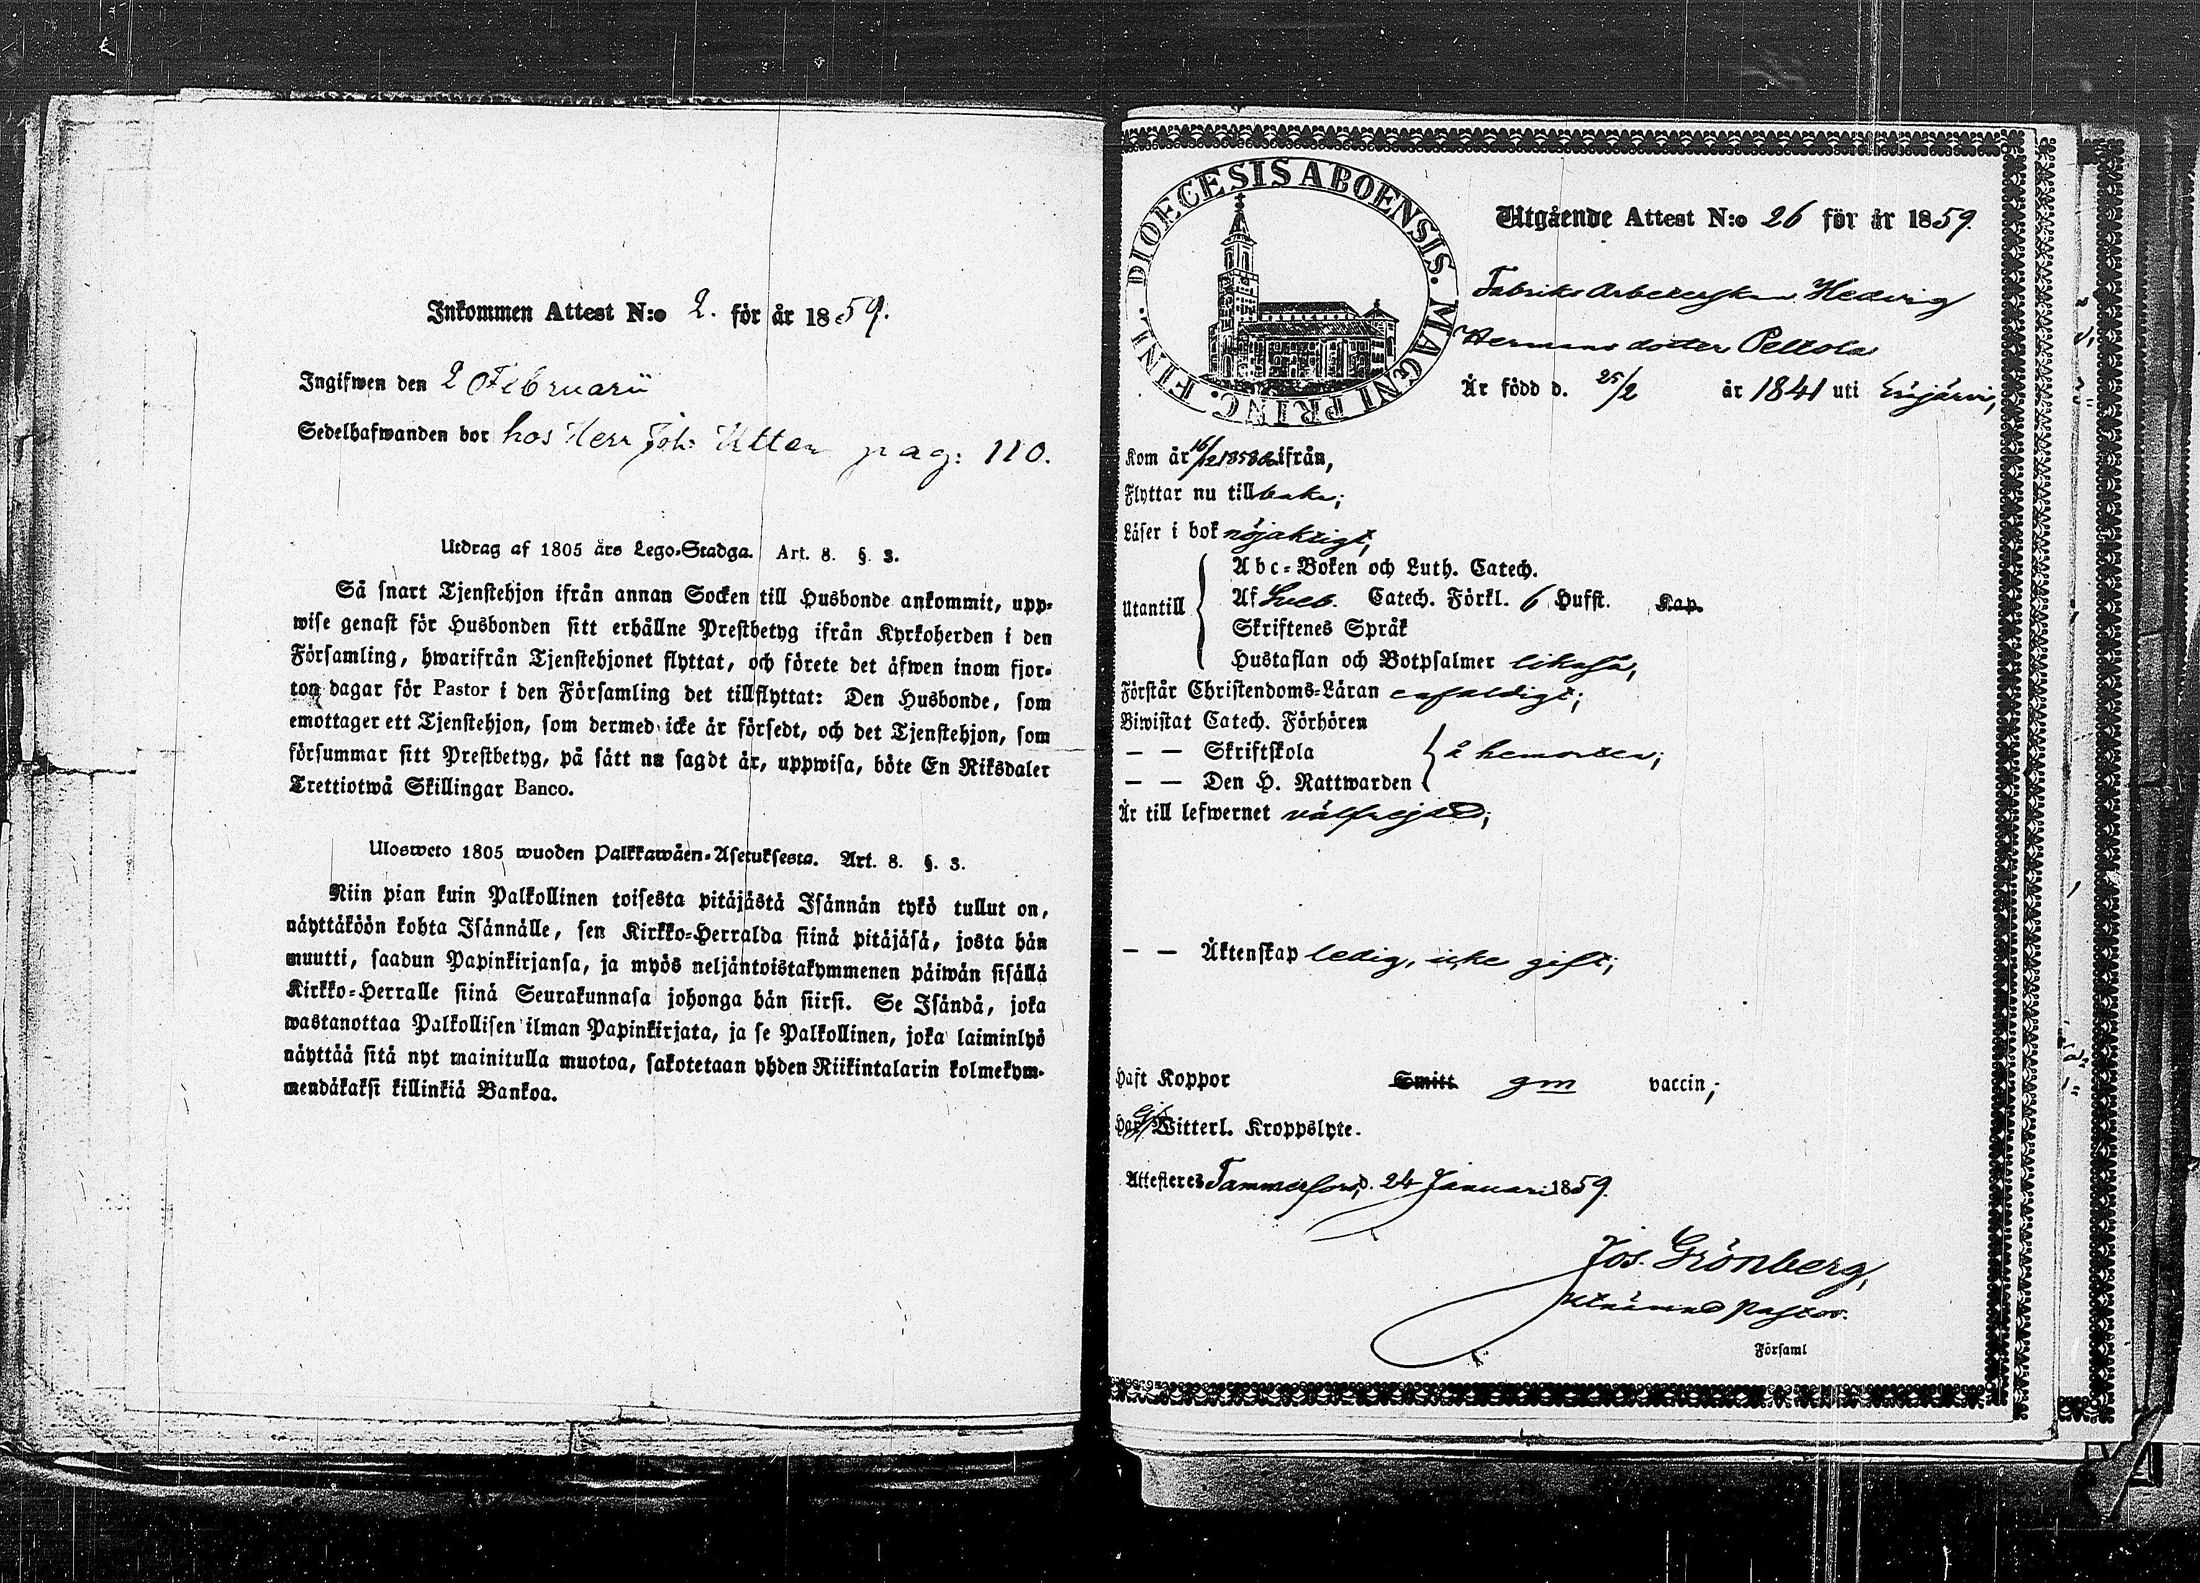 Inkommen Attest N:o 2. för år 1859.
Ingifwen den 2 Februarii
Sedelhafwanden bor hos Herr Joh: Utter pag: 110.
Utdrag af 1805 års Lego-Stadga. Art. 8. §. 3.
Så snart Tjenstehjon ifrån annan Socken till Husbonde ankommit, upp-
wise genast för Husbonden sitt erhållne Prestbetyg ifrån Kyrkoherden i den
Församling, hwarifrån Tjenstehjonet flyttat, och förete det äfwen inom fjor-
ton dagar för Pastor i den Församling det tillflyttat: Den Husbonde, som
emottager ett Tjenstehjon, som dermed icke är försedt, och det Tjenstehjon, som
försummar sitt Prestbetyg, på sätt nu sagdt är, uppwisa, böte En Riksdaler
Trettiotwå Skillingar Banco.
Ulosweto 1805 wuoden Palkkawäen-Asetuksesta. Art. 8. §. 3.
Niin pian kuin Palkollinen toisesta pitäjästä Isännän tykö tullut on,
näyttäköön kohta Isännälle, sen Kirkko-Herralda siinä pitäjäsä, josta hän
muutti, saadun Papinkirjansa, ja myös neljäntoistakymmenen päiwän sisällä
Kirkko-Herralle siinä Seurakunnasa johonga hän siirsi. Se Isändä, joka
wastanottaa Palkollisen ilman Papinkirjata, ja se Palkollinen, joka laiminlyö
näyttää sitä nyt mainitulla muotoa, sakotetaan yhden Riikintalarin kolmekym-
mendäkaksi killinkiä Bankoa.
DIOECESIS ABOENSIS. MAGNI PRINC. FINL.
Utgående Attest N:o 26 för år 1859.
Fabriks Arbeterskan Hedvig
Hermans dotter Peltola
Är född d. 25/2 år 1841 uti Eurajärvi,
Kom år 16/12 1858 ifrån,
Flyttar nu tillbaka;
Läser i bok nöjaktigt,
Abc-Boken och Luth. Catech.
Utantill Af Sveb. Catech. Förkl. 6 Hufst. Kap.
Skriftenes Språk
Hustaflan och Botpsalmer likaså,
Förstår Christendoms-Läran enfaldigt;
Biwistat Catech. Förhören
— — Skriftskola å hemorten;
— — Den H. Nattwarden
Är till lefwernet välfrejdad;
— — Äktenskap ledig, icke gift;
Haft Koppor Smitt. gm vaccin;
Har Witterl. Kroppslyte.
Attesteres Tammerfors, d. 24 Januari 1859.
Jos. Grönberg,
utnämnd Pastor.
Församl